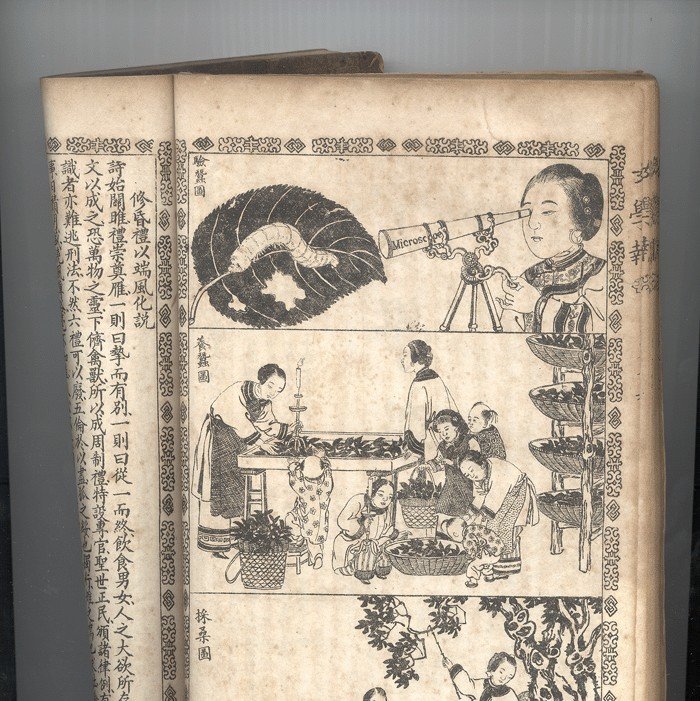 學
驗蠶圖
Microscope
養蠶圖
採桑圖
修昏禮以端風化説
詩始關雎禮崇奠雁一則曰摯而有别一則曰從一而終飲食男女人之大欲所存
文以成之恐萬物之靈下儕禽獸所以成周制禮特設專官聖世正民頒諸律例有
識者亦難逃刑法不然六禮可以廢五倫